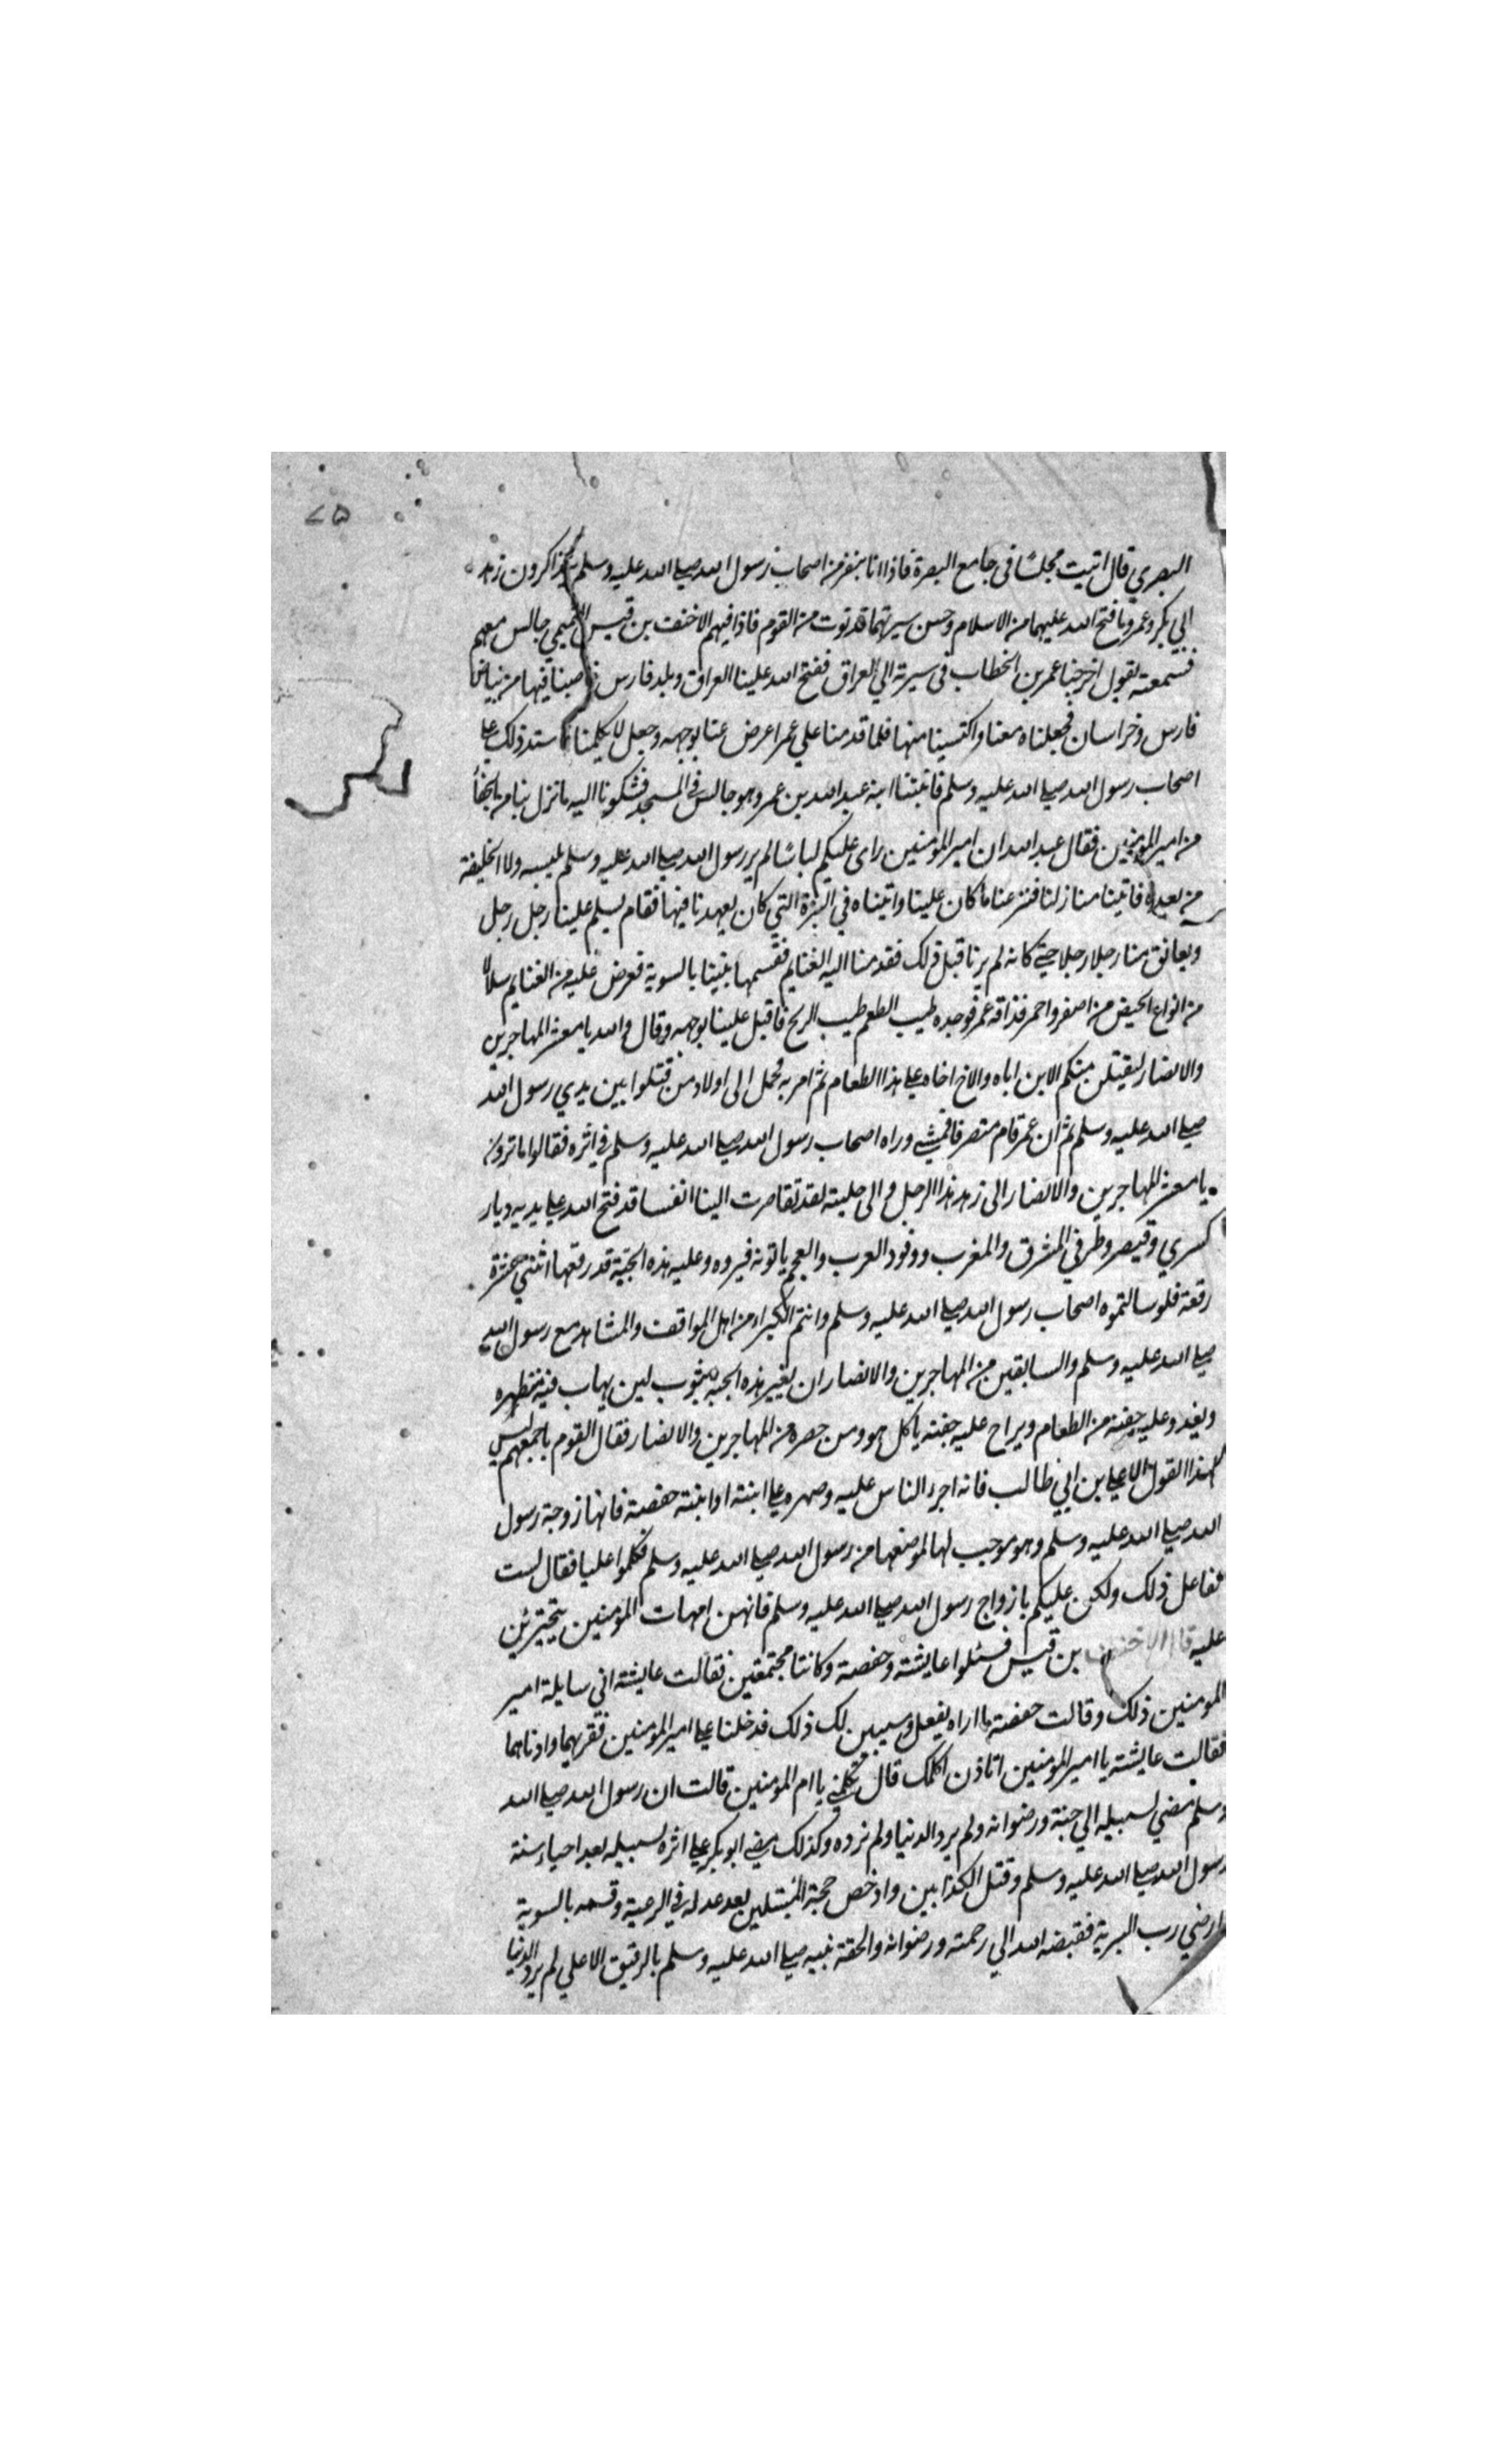 ٧٥
البصري قال اتيت مجلسًا في جامع البصرة فاذا انا بنفر من اصحاب رسول الله صلى الله عليه وسلم يتذاكرون زهد
ابي بكر وعمر وما فتح الله عليهما من الاسلام وحسن سيرتهما فدنوت من القوم فاذا فيهم الاحنف بن قيس التميمي جالس معهم
فسمعته يقول اخرجنا عمر بن الخطاب في سيرته الي العراق ففتح الله علينا العراق وبلد فارس فاصبنا فيها من بياض
فارس وخراسان فجعلناه معنا واكتسينا منها فلما قدمنا علي عمر اعرض عنا بوجهه وجعل لا يكلمنا فاشتد ذلك على
اصحاب رسول الله صلى الله عليه وسلم فاتينا ابنه عبد الله بن عمر وهو جالس في المسجد فشكونا اليه ما نزل بنا من الجفا
من امير المومنين فقال عبد الله ان امير المؤمنين راى عليكم لباسًا لم ير رسول الله صلى الله عليه وسلم يلبسه ولا الخليفة
من بعده فاتينا منازلنا فنزعنا ما كان علينا واتيناه في البزة التي كان يعهدنا فيها فقام يسلم علينا رجل رجل
ويعانق منا رجلا رجلا حتى كانه لم يرنا قبل ذلك فقدمنا اليه الغنايم فقسمها بيننا بالسوية فعرض عليه من الغنايم سلالا
من انواع الخبيص من اصفر واحمر فذاقه عمر فوجده طيب الطعم طيب الريح فاقبل علينا بوجهه وقال والله يا معشر المهاجرين
والانصار ليقتلن منكم الابن اباه والاخ اخاه على هذا الطعام ثم امر به فحمل الى اولاد من قتلوا بين يدي رسول الله
صلى الله عليه وسلم ثم ان عمر قام منصرفا فمشى وراه اصحاب رسول الله صلى الله عليه وسلم في اثره فقالوا ما ترون
يا معشر المهاجرين والانصار الى زهد هذا الرجل والى حليته لقد تقاصرت الينا انفسنا قد فتح الله على يديه ديار
كسري وقيصر وطرفي المشرق والمغرب ووفود العرب والعجم ياتونه فيروه وعليه هذه الجبة قد رقعها اثنتي عشرة
رقعة فلو سالتموه اصحاب رسول الله صلى الله عليه وسلم وانتم الكبراء من اهل المواقف والمشاهد مع رسول الله
صلى الله عليه وسلم والسابقين من المهاجرين والانصار ان يغير هذه الجبة بثوب لين يهاب فيه منظره
ويغدو عليه جفنة من الطعام ويراح عليه جفنة ياكل هو ومن حضره من المهاجرين والانصار فقال القوم باجمعهم ليس
لهذا القول الا علي بن ابي طالب فانه اجرء الناس عليه وصهره على ابنته او ابنته حفصة فانها زوجة رسول
الله صلى الله عليه وسلم وهو موجب لها لموضعها من رسول الله صلى الله عليه وسلم فكلموا عليا فقال لست
بفاعل ذلك ولكن عليكم بازواج رسول الله صلى الله عليه وسلم فانهن امهات المومنين يتجترئن
عليه قال الاحنف بن قيس فسئلوا عايشة وحفصة وكانتا مجتمعتين فقالت عايشة اني سايلة امير
المومنين ذلك وقالت حفصة ما اراه يفعل وسيبين لك ذلك فدخلنا على امير المؤمنين فقربهما وادناهما
فقالت عايشة يا امير المومنين اتاذن اكلمك قال تكلمي يا ام المومنين قالت ان رسول الله صلى الله
وسلم مضي لسبيله الي جنة ورضوانه ولم يرد الدنيا ولم ترده وكذلك مضى ابو بكر على اثره لسبيله بعد احياء سنة
رسول الله صلى الله عليه وسلم وقتل الكذابين وادحض حجة المبطلين بعد عدله في الرعية وقسمه بالسوية
وارضي رب البرية فقبضه الله الي رحمته ورضوانه والحقه بنبيه صلى الله عليه وسلم بالرفيق الاعلي لم يرد الدنيا